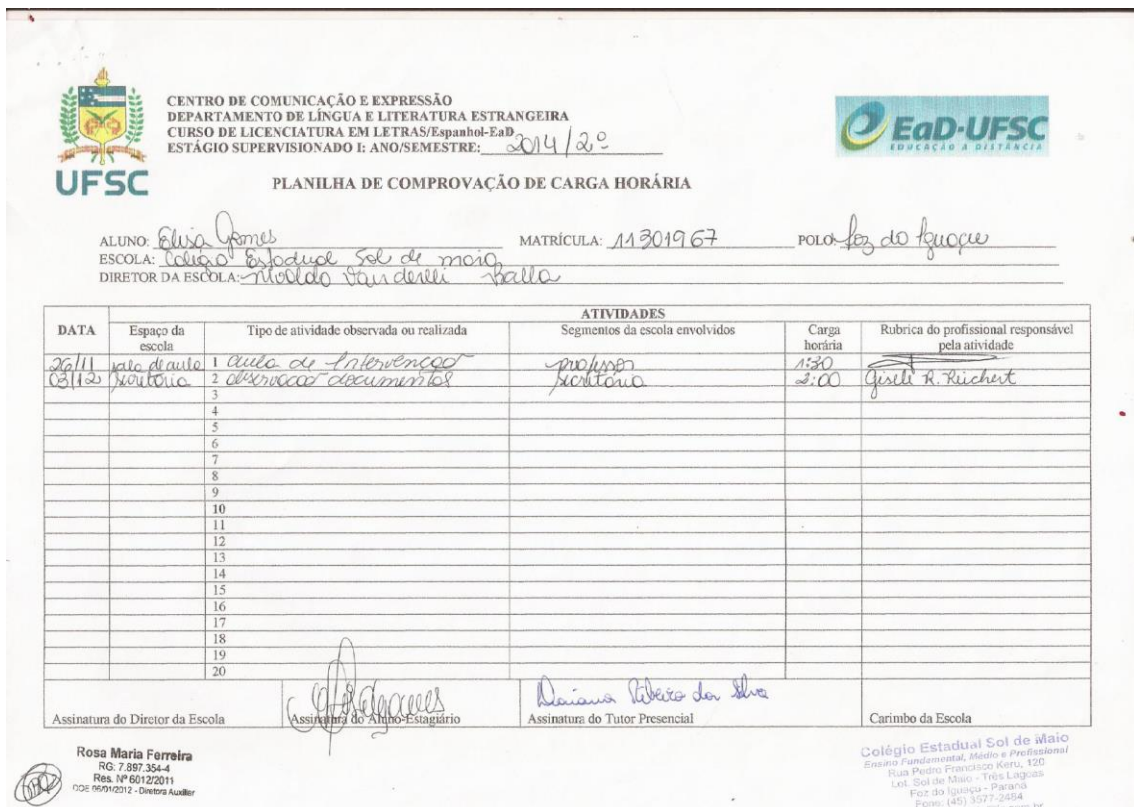 CENTRO DE COMUNICAÇÃO E EXPRESSÃO
DEPARTAMENTO DE LÍNGUA E LITERATURA ESTRANGEIRA
CURSO DE LICENCIATURA EM LETRAS/Espanhol-EaD
ESTÁGIO SUPERVISIONADO I: ANO/SEMESTRE: 2014/2º
UFSC
EaD-UFSC
EDUCAÇÃO A DISTÂNCIA
PLANILHA DE COMPROVAÇÃO DE CARGA HORÁRIA
ALUNO: Elisa Gomes MATRÍCULA: 11301967 POLO: Foz do Iguaçu
ESCOLA: Colégio Estadual Sol de maio
DIRETOR DA ESCOLA: Balla
ATIVIDADES
DATA Espaço da escola Tipo de atividade observada ou realizada Segmentos da escola envolvidos Carga horária Rubrica do profissional responsável pela atividade
26/11 sala de aula 1 aula de Intervenção professor 1:30
03/12 secretária 2 observação documentos secretária 2:00 Giseli R. Reichert
3
4
5
6
7
8
9
10
11
12
13
14
15
16
17
18
19
20
Daiana Ribeiro da Silva
Assinatura do Diretor da Escola Assinatura do Aluno-Estagiário Assinatura do Tutor Presencial Carimbo da Escola
Rosa Maria Ferreira
RG: 7.897.354-4
Res. Nº 6012/2011
DOE 06/01/2012 - Diretora Auxiliar
Colégio Estadual Sol de Maio
Ensino Fundamental, Médio e Profissional
Rua Pedro Francisco Keru, 120
Lot. Sol de Maio - Três Lagoas
Foz do Iguaçu - Paraná
Fone: (45) 3577-2484